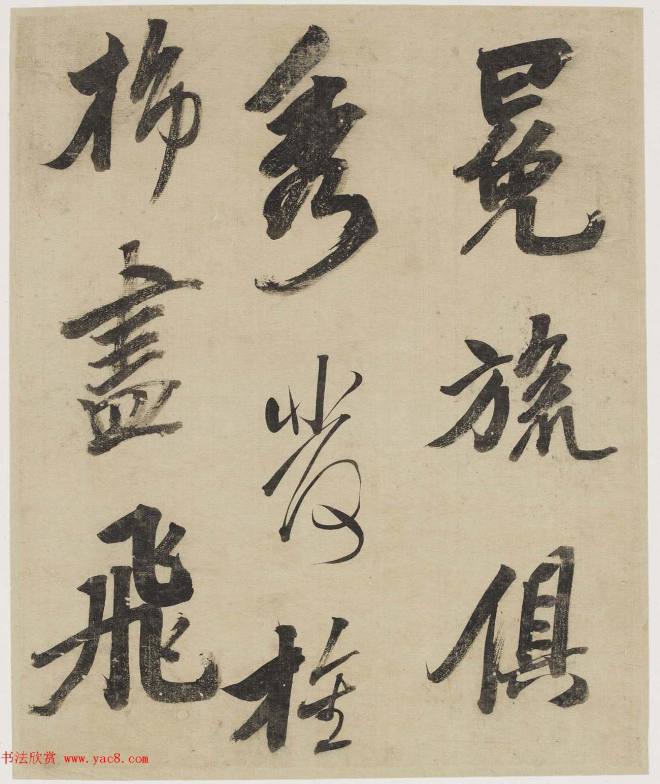 冕旒俱
秀發旌
旆盡飛
书法欣赏 www.yac8.com